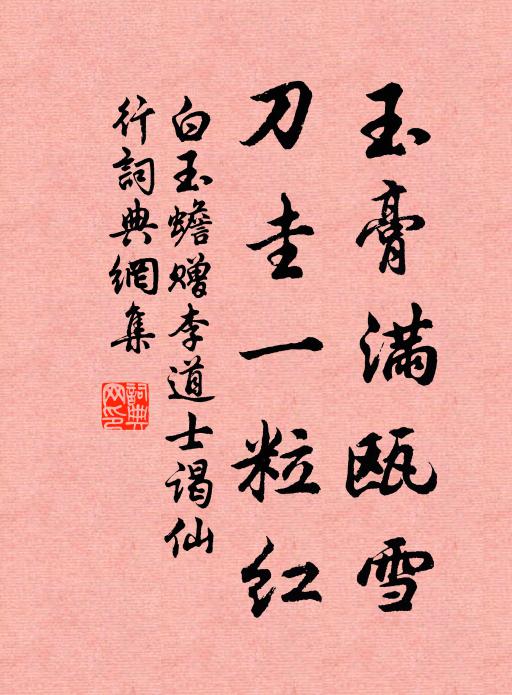 玉膏满瓯雪
刀圭一粒红
白玉蟾赠李道士谒仙
行詞典網集
詞典网印